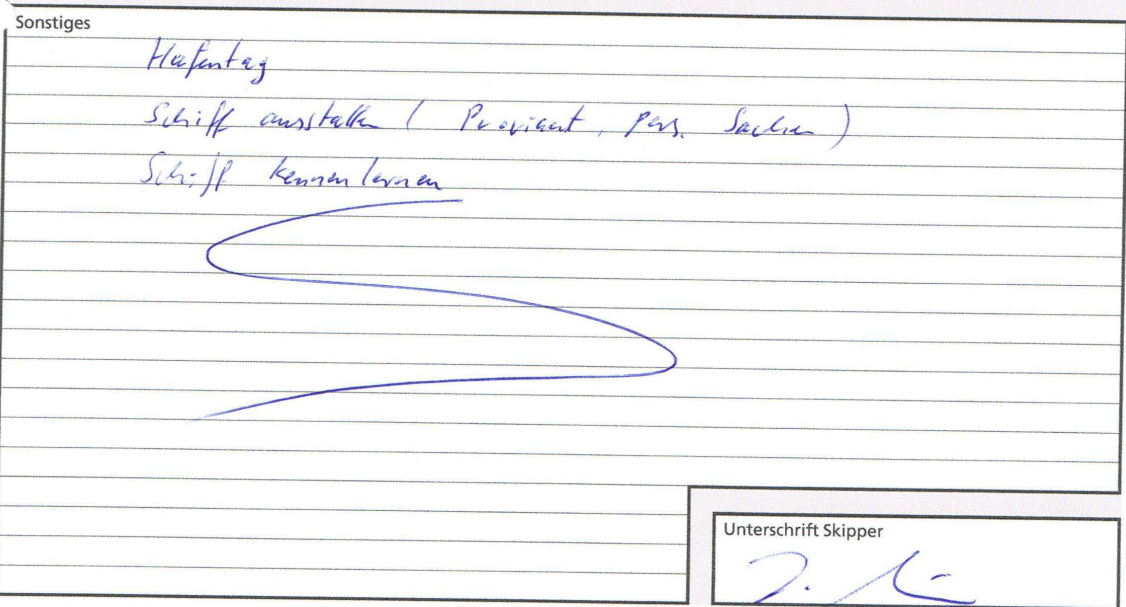 Sonstiges
Hafentag
Schiff ausstatten ( Proviant, pers. Sachen )
Schiff kennenlernen
Unterschrift Skipper